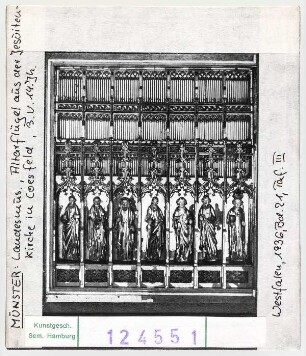 MÜNSTER: Landesmus., Altarflügel aus der Jesuiten-
kirche in Coesfeld. 3. V. 14. Jh.
Westfalen, 1936, Bd. 21, Taf. III
Kunstgesch.
Sem. Hamburg
124551